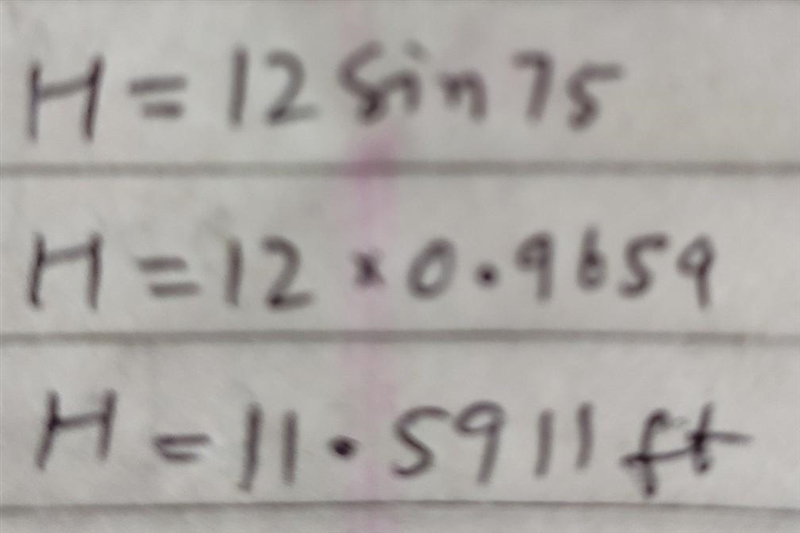 H = 12 Sin 75
H = 12 × 0.9659
H = 11.5911 ft